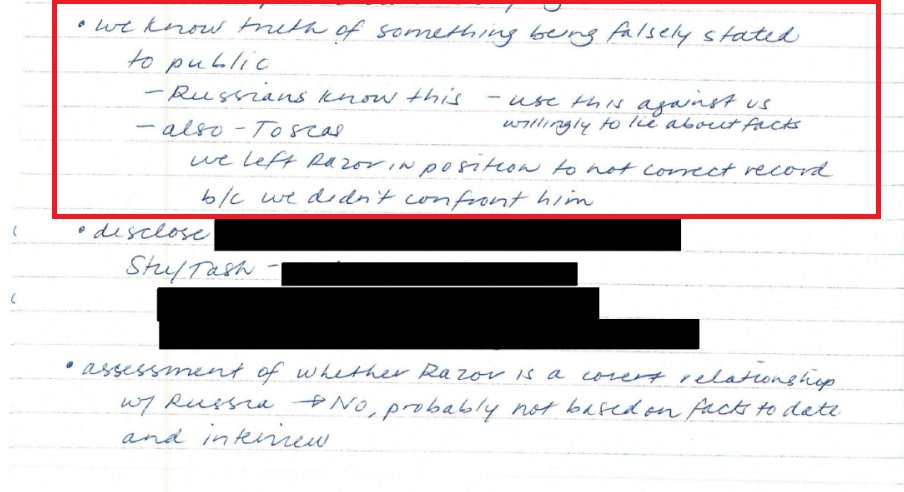 • we know truth of something being falsely stated
to public
– Russians know this – use this against us
willingly to lie about facts
– also – Toscas
we left Razor in position to not correct record
b/c we didn't confront him
• disclose
Stu/Tash –
• assessment of whether Razor is a covert relationship
w/ Russia → No, probably not based on facts to date
and interview